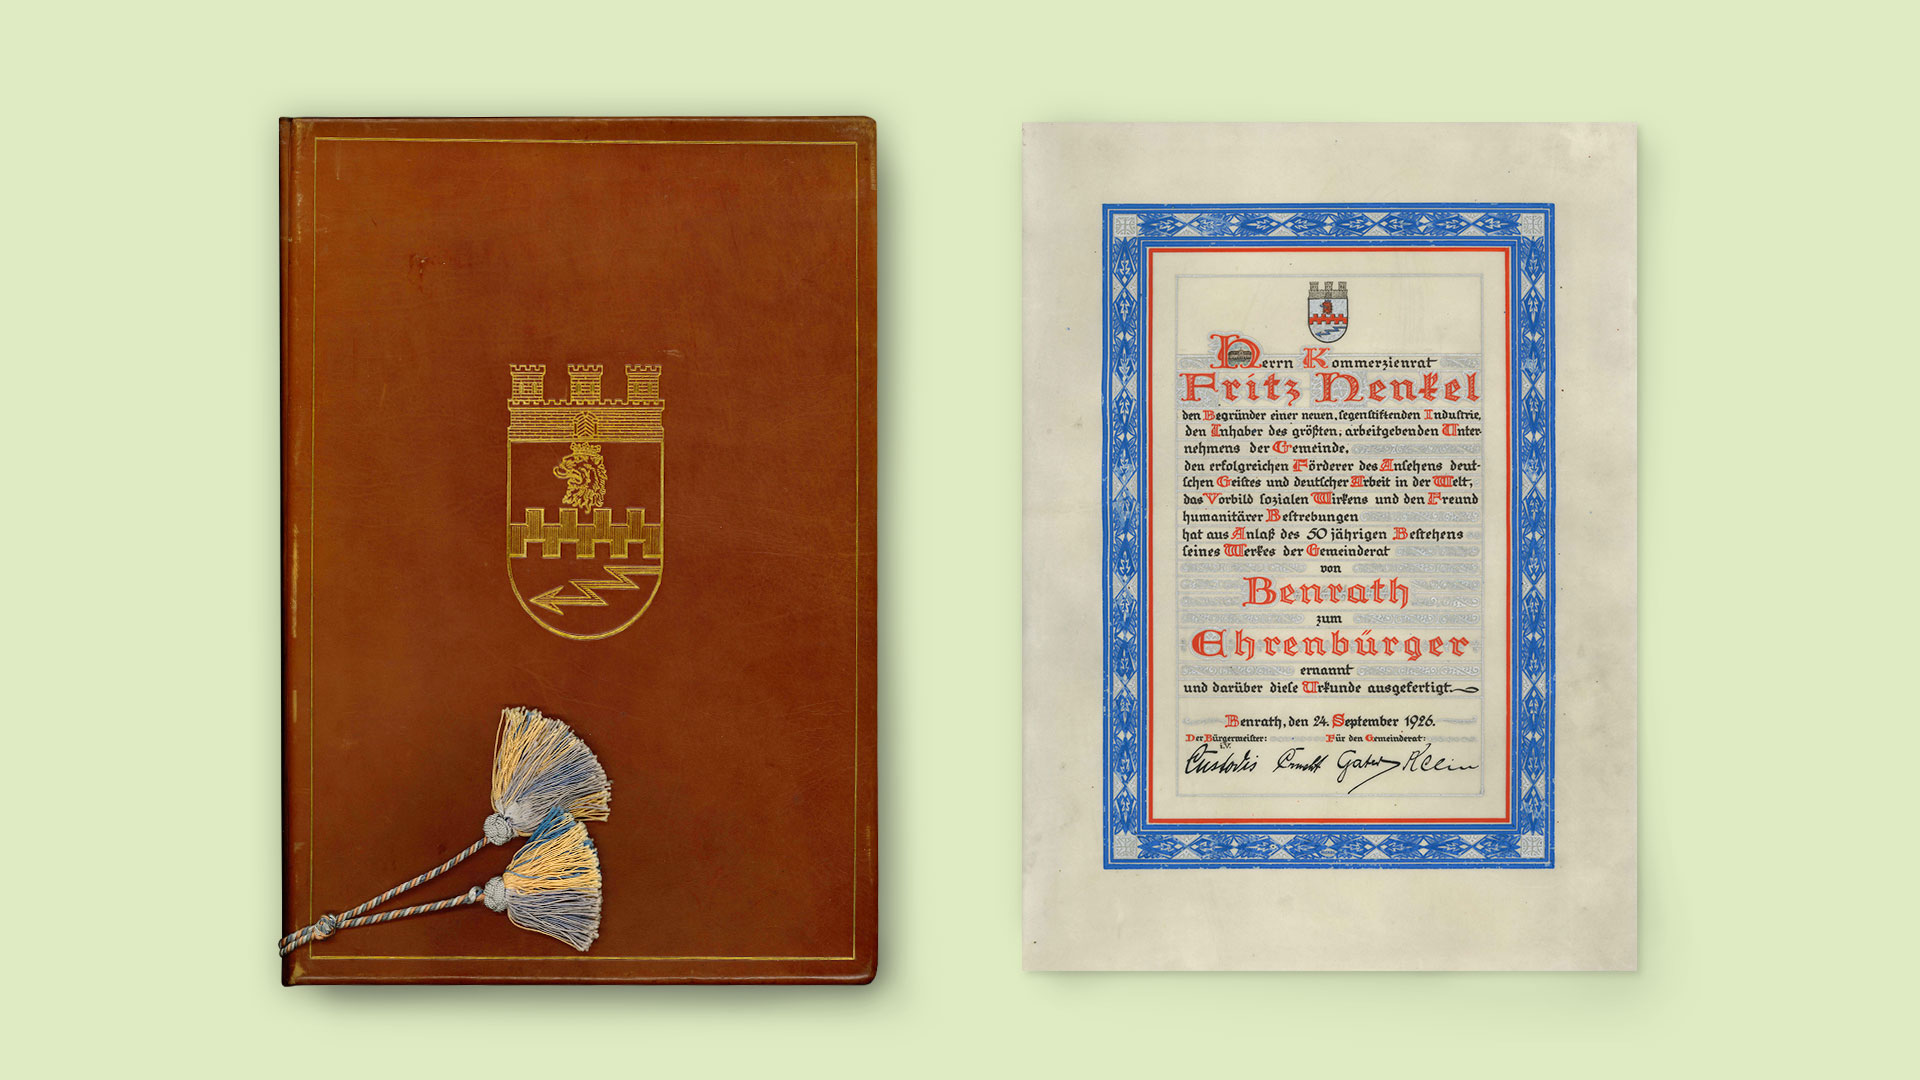 Herrn Kommerzienrat
Fritz Henkel
den Begründer einer neuen, segenstiftenden Industrie,
den Inhaber des größten, arbeitgebenden Unter-
nehmens der Gemeinde,
den erfolgreichen Förderer des Ansehens deut-
schen Geistes und deutscher Arbeit in der Welt,
das Vorbild sozialen Wirkens und den Freund
humanitärer Bestrebungen
hat aus Anlaß des 50 jährigen Bestehens
seines Werkes der Gemeinderat
von
Benrath
zum
Ehrenbürger
ernannt
und darüber diese Urkunde ausgefertigt.
Benrath, den 24. September 1926.
Der Bürgermeister: Für den Gemeinderat:
i.V.
Custodis Klein